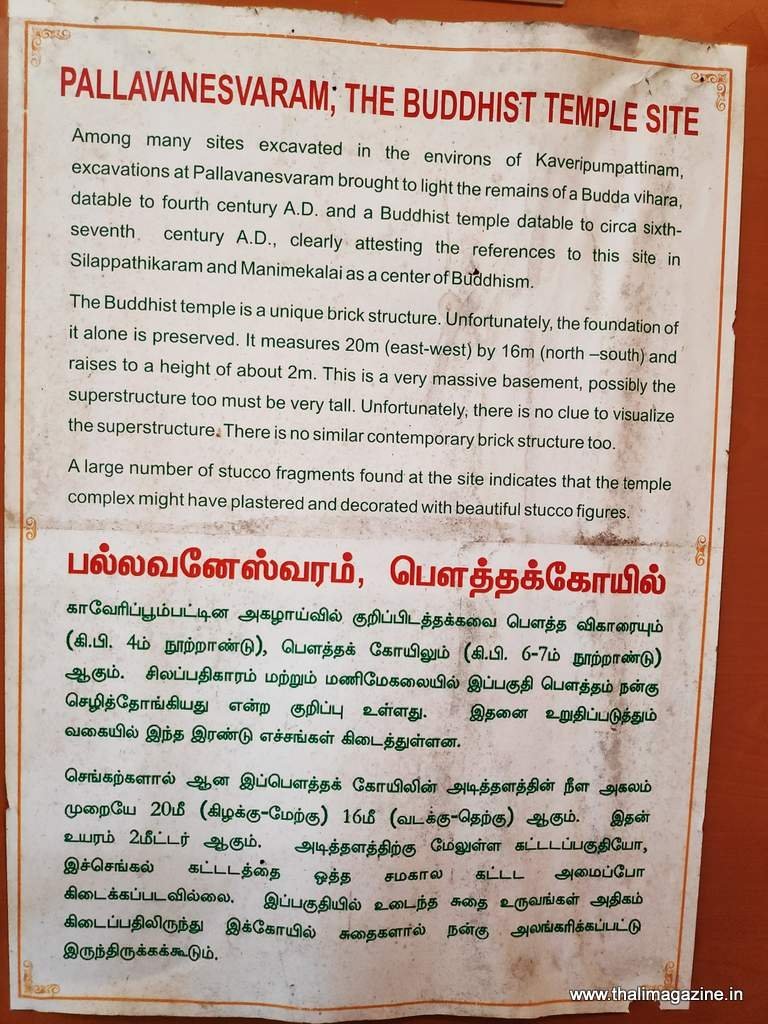 PALLAVANESVARAM, THE BUDDHIST TEMPLE SITE
Among many sites excavated in the environs of Kaveripumpattinam,
excavations at Pallavanesvaram brought to light the remains of a Budda vihara,
datable to fourth century A.D. and a Buddhist temple datable to circa sixth-
seventh century A.D., clearly attesting the references to this site in
Silappathikaram and Manimekalai as a center of Buddhism.
The Buddhist temple is a unique brick structure. Unfortunately, the foundation of
it alone is preserved. It measures 20m (east-west) by 16m (north –south) and
raises to a height of about 2m. This is a very massive basement, possibly the
superstructure too must be very tall. Unfortunately, there is no clue to visualize
the superstructure. There is no similar contemporary brick structure too.
A large number of stucco fragments found at the site indicates that the temple
complex might have plastered and decorated with beautiful stucco figures.
பல்லவனேஸ்வரம், பௌத்தக்கோயில்
காவேரிப்பூம்பட்டின அகழாய்வில் குறிப்பிடத்தக்கவை பௌத்த விகாரையும்
(கி.பி. 4ம் நூற்றாண்டு), பௌத்தக் கோயிலும் (கி.பி. 6-7ம் நூற்றாண்டு)
ஆகும். சிலப்பதிகாரம் மற்றும் மணிமேகலையில் இப்பகுதி பௌத்தம் நன்கு
செழித்தோங்கியது என்ற குறிப்பு உள்ளது. இதனை உறுதிப்படுத்தும்
வகையில் இந்த இரண்டு எச்சங்கள் கிடைத்துள்ளன.
செங்கற்களால் ஆன இப்பௌத்தக் கோயிலின் அடித்தளத்தின் நீள அகலம்
முறையே 20மீ (கிழக்கு-மேற்கு) 16மீ (வடக்கு-தெற்கு) ஆகும். இதன்
உயரம் 2மீட்டர் ஆகும். அடித்தளத்திற்கு மேலுள்ள கட்டடப்பகுதியோ,
இச்செங்கல் கட்டடத்தை ஒத்த சமகால கட்டட அமைப்போ
கிடைக்கப்படவில்லை. இப்பகுதியில் உடைந்த சுதை உருவங்கள் அதிகம்
கிடைப்பதிலிருந்து இக்கோயில் சுதைகளால் நன்கு அலங்கரிக்கப்பட்டு
இருந்திருக்கக்கூடும்.
www.thalimagazine.in